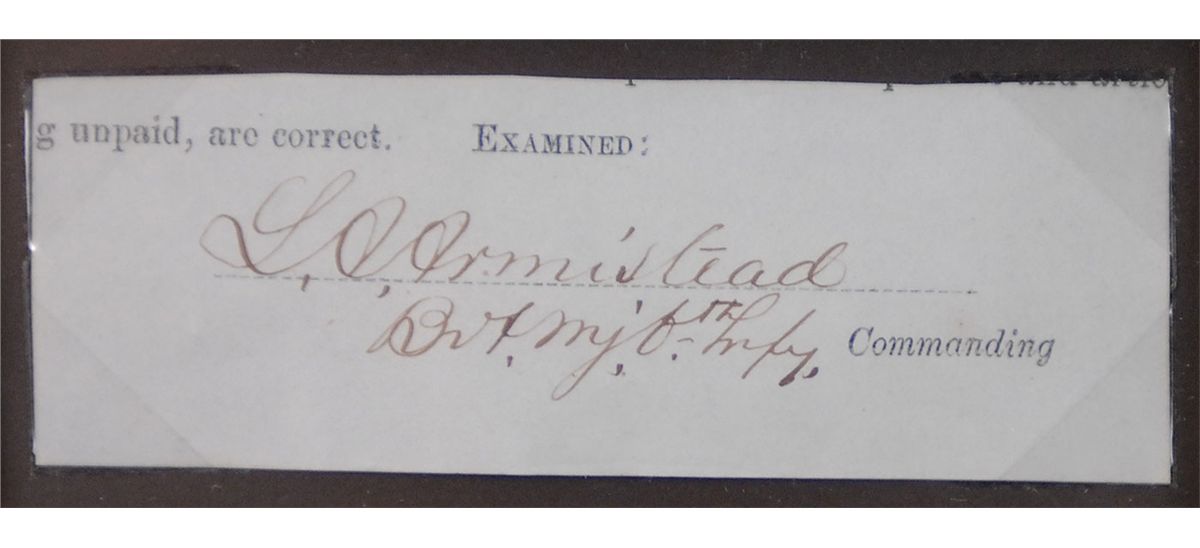 g unpaid, are correct. EXAMINED:
L. A. Armistead
Bvt. Mj. 6th Infy, Commanding